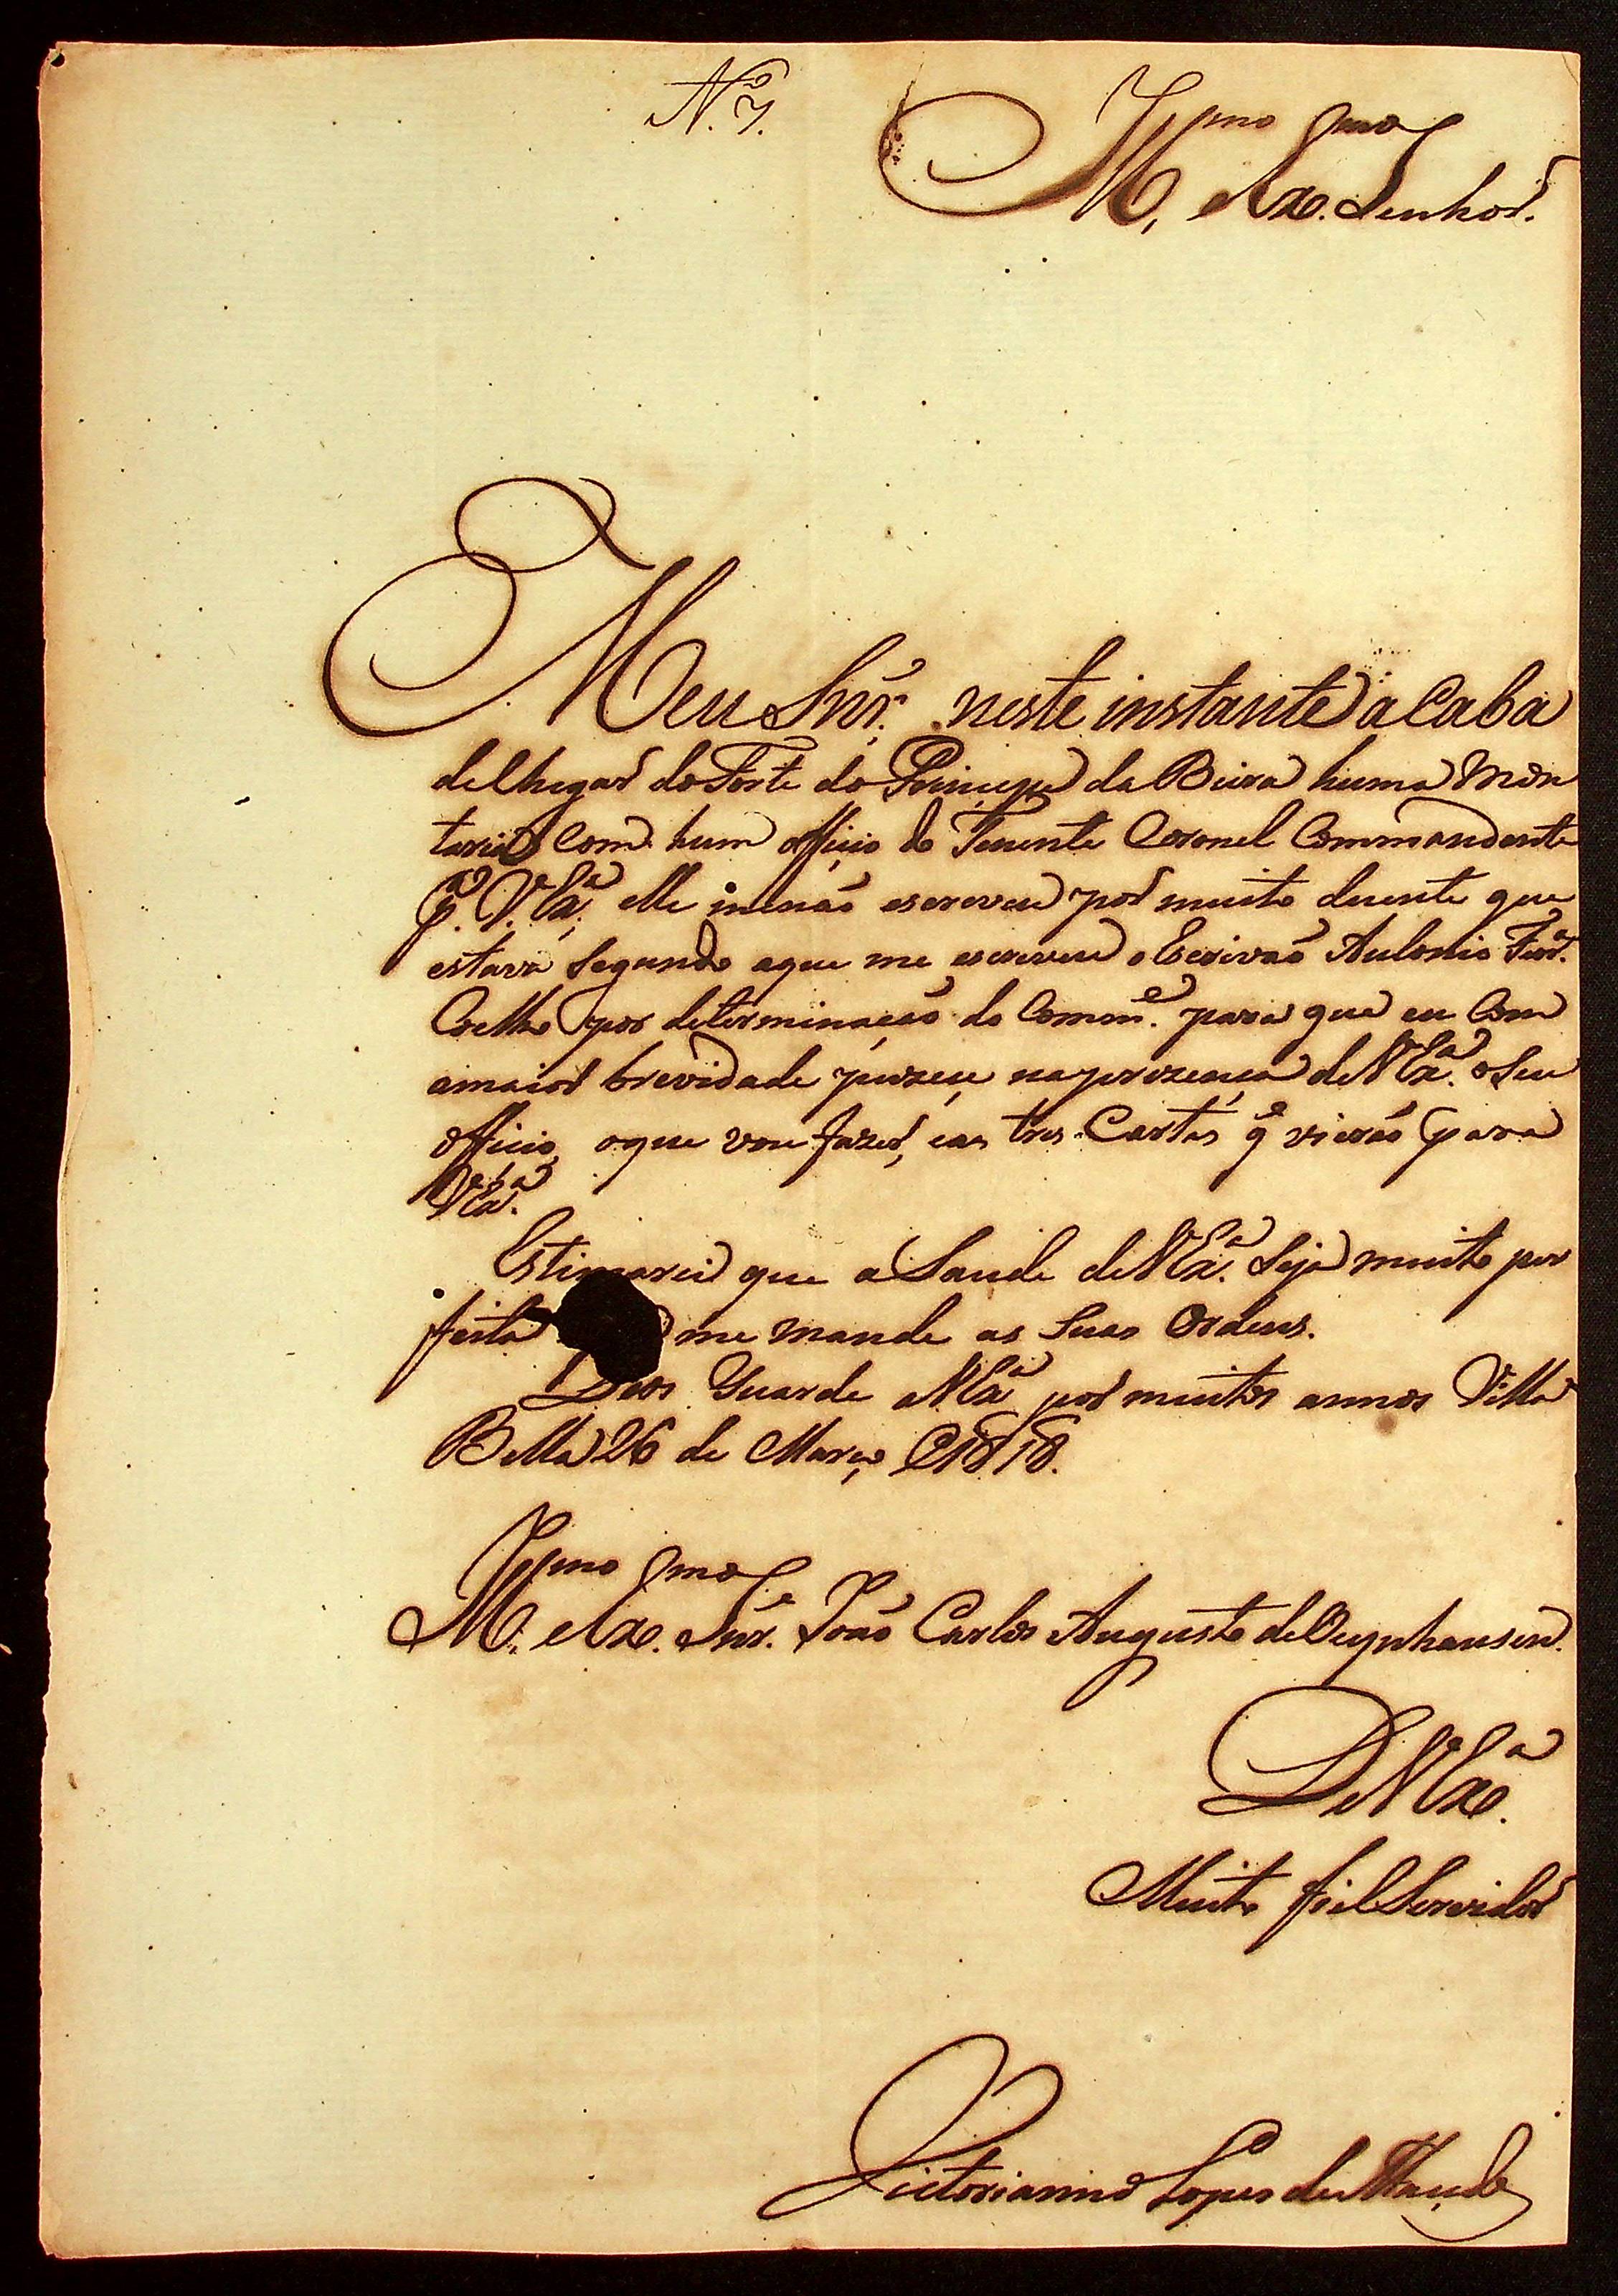 N.º 7.
Ill.mo e Ex.mo Senhor.
Meu Snr.' neste instante acaba
de Chegar do Forte do Principe da Beira huma Mon
taria com hum officio do Tenente Coronel Commandente
p.ª V. Ex.ª, elle me não escreveu por muito duente que
estava segundo aque me escreveu o Escrivaõ Antonio
Coelho por determinaçaõ do Comm.e para que eu Com
amaior brevidade puzeçe naprezença de V Ex.ª o Seu
officio, oque vou fazer, eas tres Cartas q̃ vieraõ para
V Ex.ª
Estimarei que a Saude de V Ex.ª Seja muito per
feita me mande as Suas Ordens.
Deos Guarde a V Ex.ª por muitos annos Villa
Bella 26 de Março 1818.
Ill.mo e Ex.mo Snr.' Joaõ Carlos Augusto de Oeynhausen.
De V Ex.ª
Muito fiel Servidor
Victorianno Lopes de